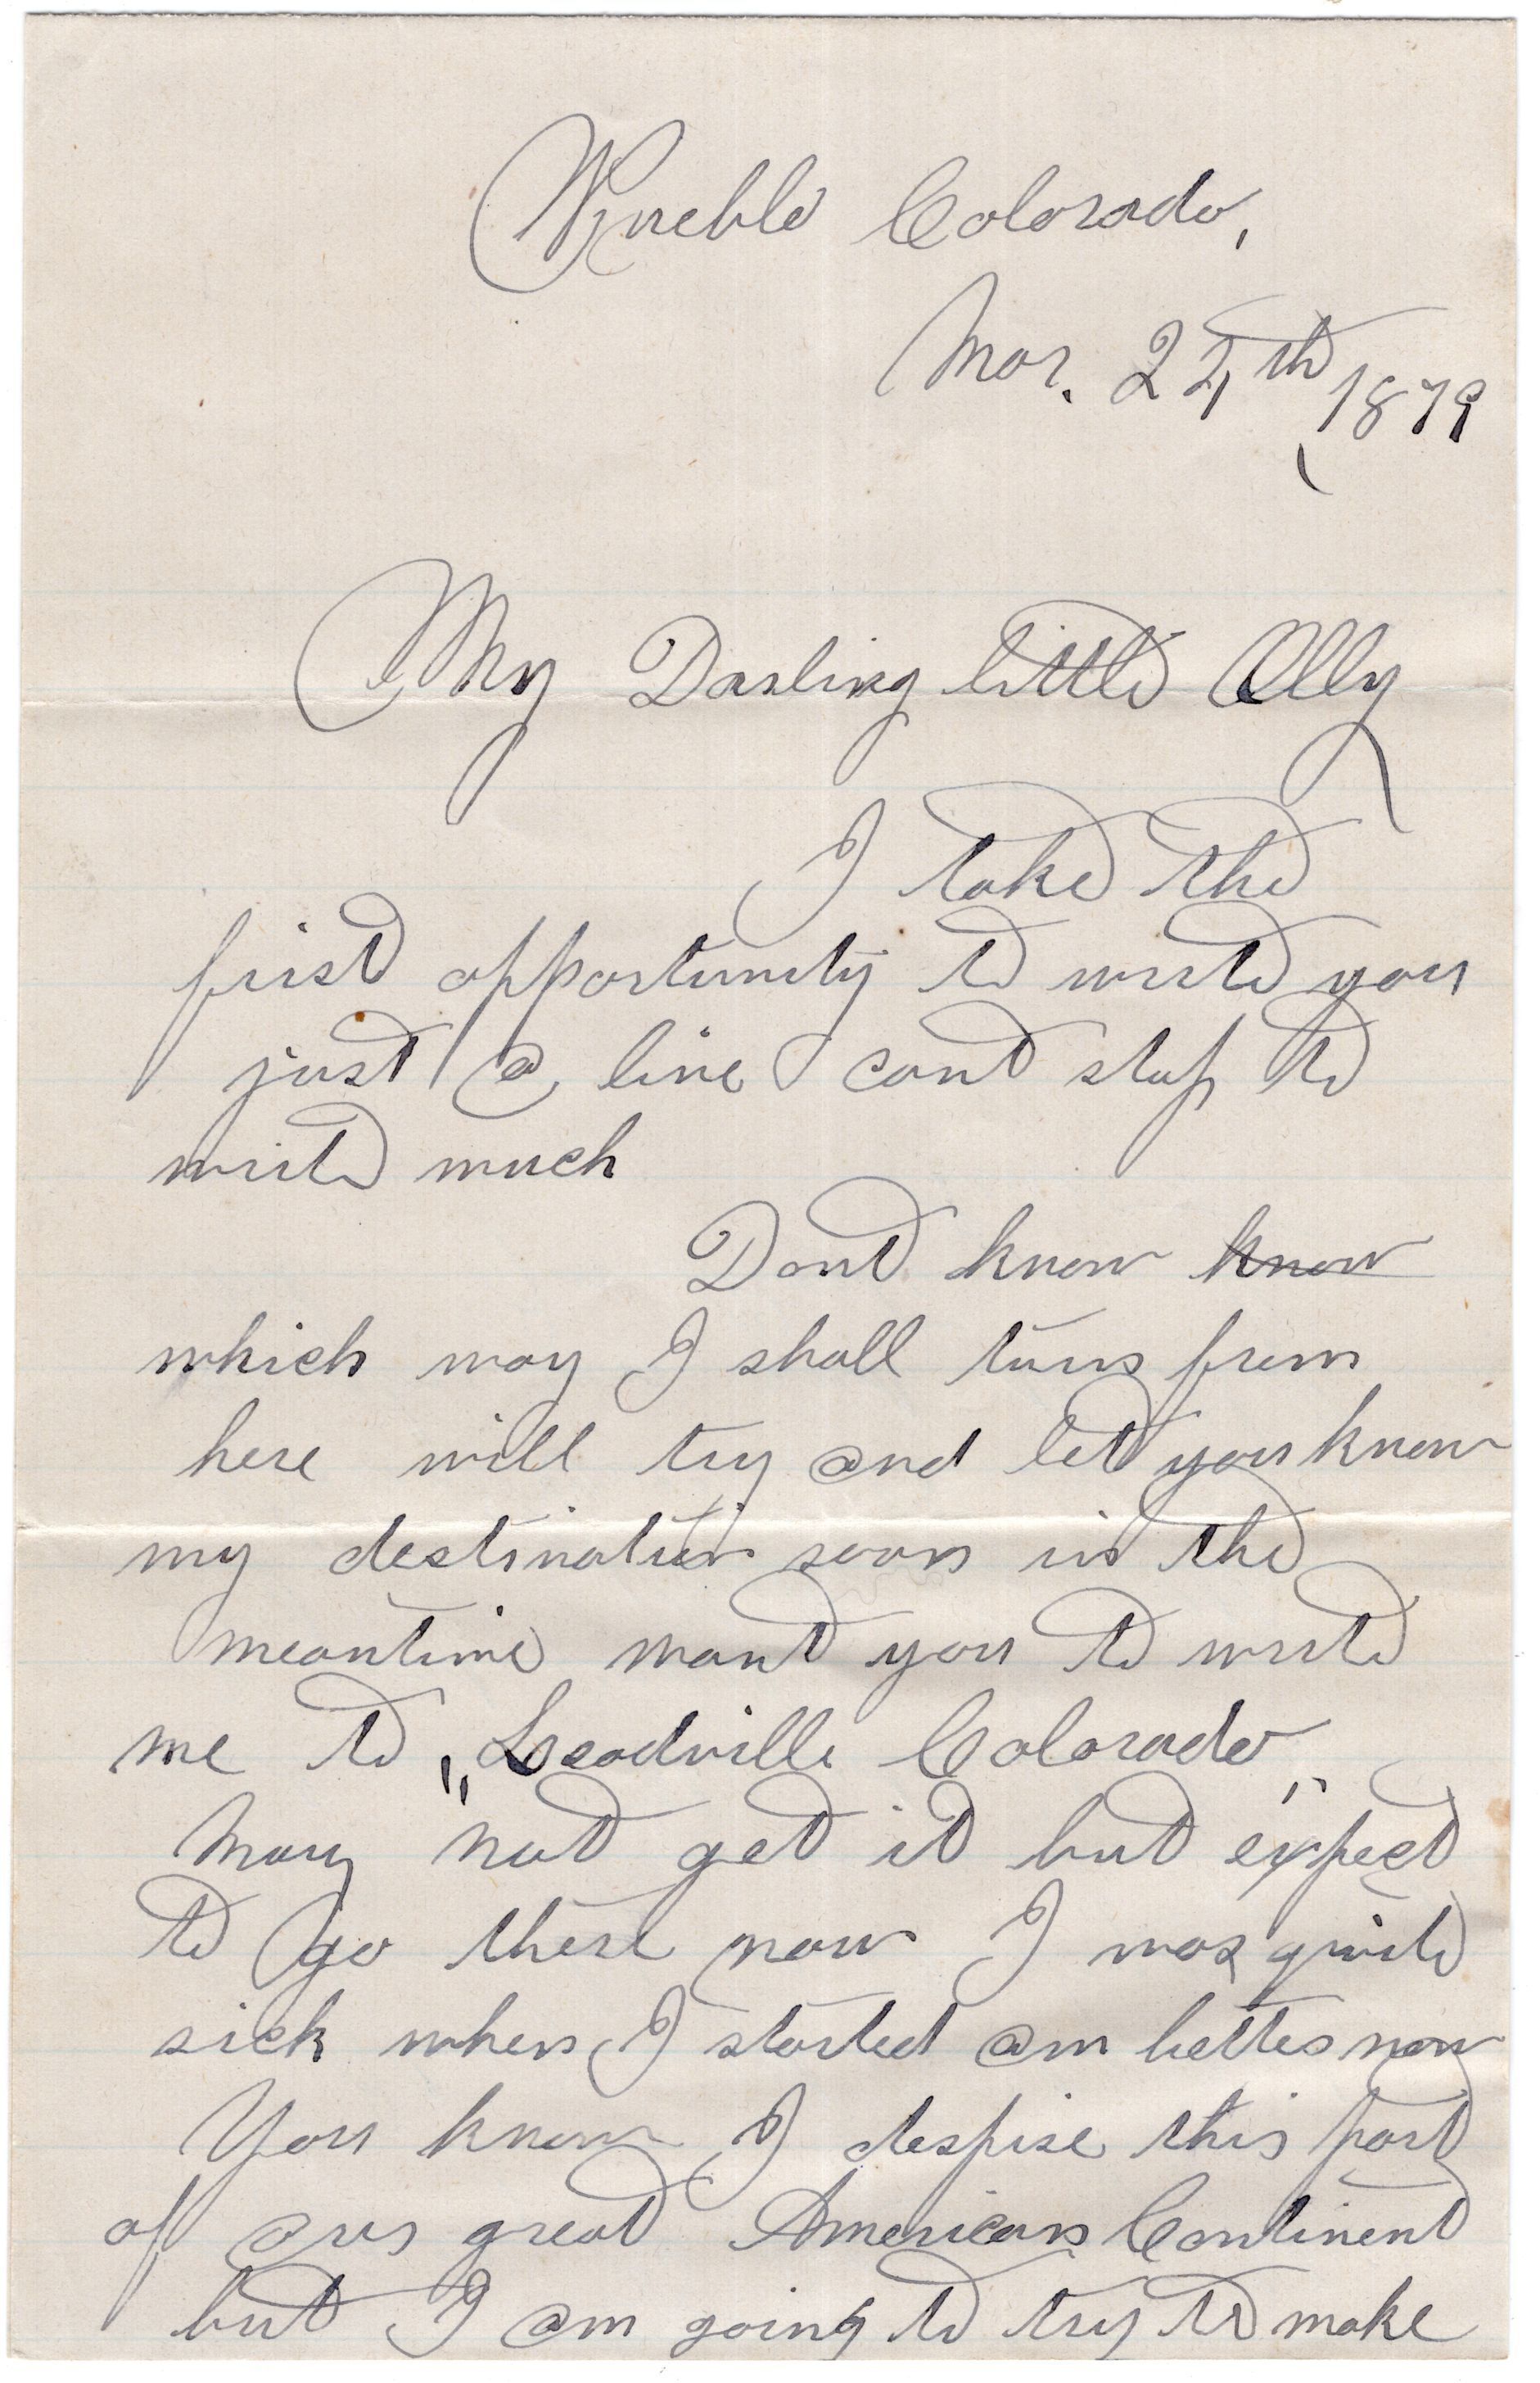 Pueblo Colorado,
Mar. 24th 1879
My Darling little Olly
I take the
first opportunity to write you
just a line I cant stop to
write much
Dont know know
which way I shall turn from
here will try and let you know
my destination soon in the
meantime want you to write
me to „Leadville Colorado„
May not get it but expect
to go there now I was quite
sick when I started am better now
You know I despise this part
of our great American Continent
but I am going to try to make